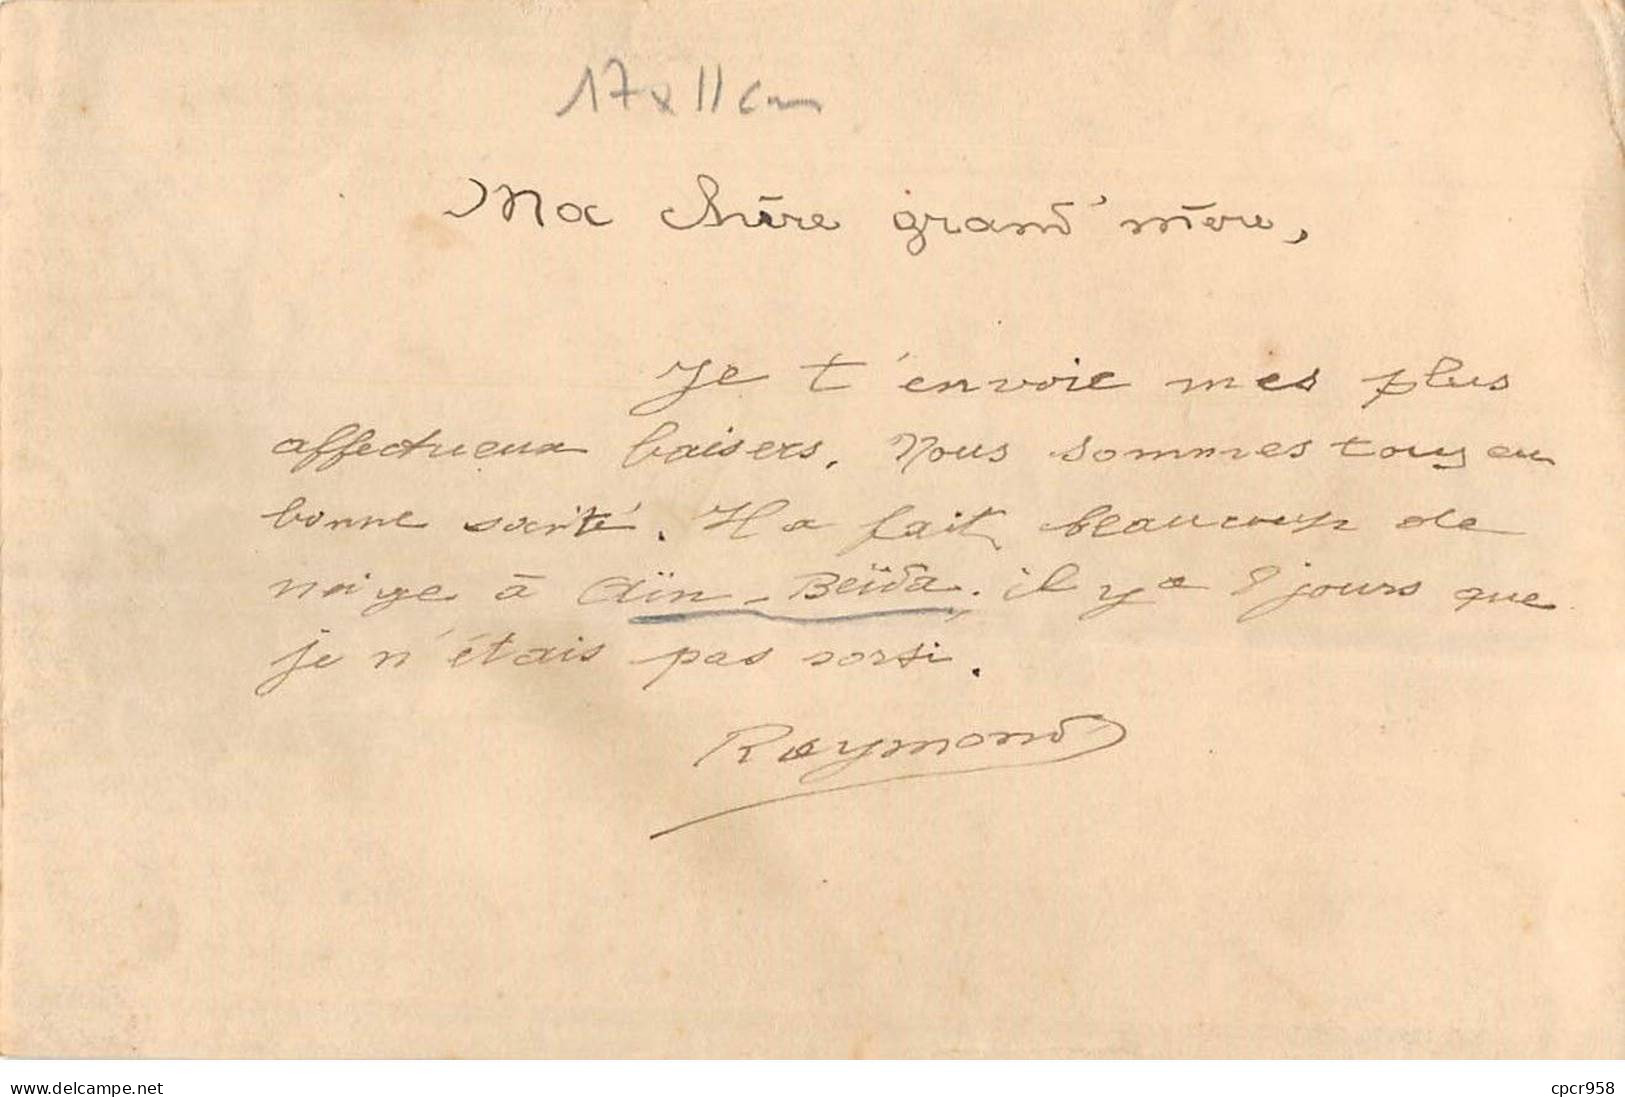 17 x 11 cm
Ma chère grand'mère,
Je t'envoie mes plus
affectueux baisers. Nous sommes tous en
bonne santé. Il a fait beaucoup de
neige à Aïn-Beïda. il y a 8 jours que
je n'étais pas sorti.
Raymond
www.delcampe.net
cpcr958